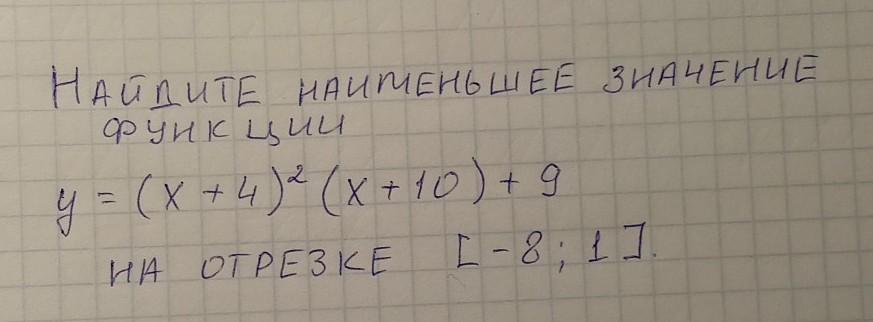 НАЙДИТЕ НАИМЕНЬШЕЕ ЗНАЧЕНИЕ
ФУНКЦИИ
y = (x + 4)² (x + 10) + 9
НА ОТРЕЗКЕ [-8; 1].